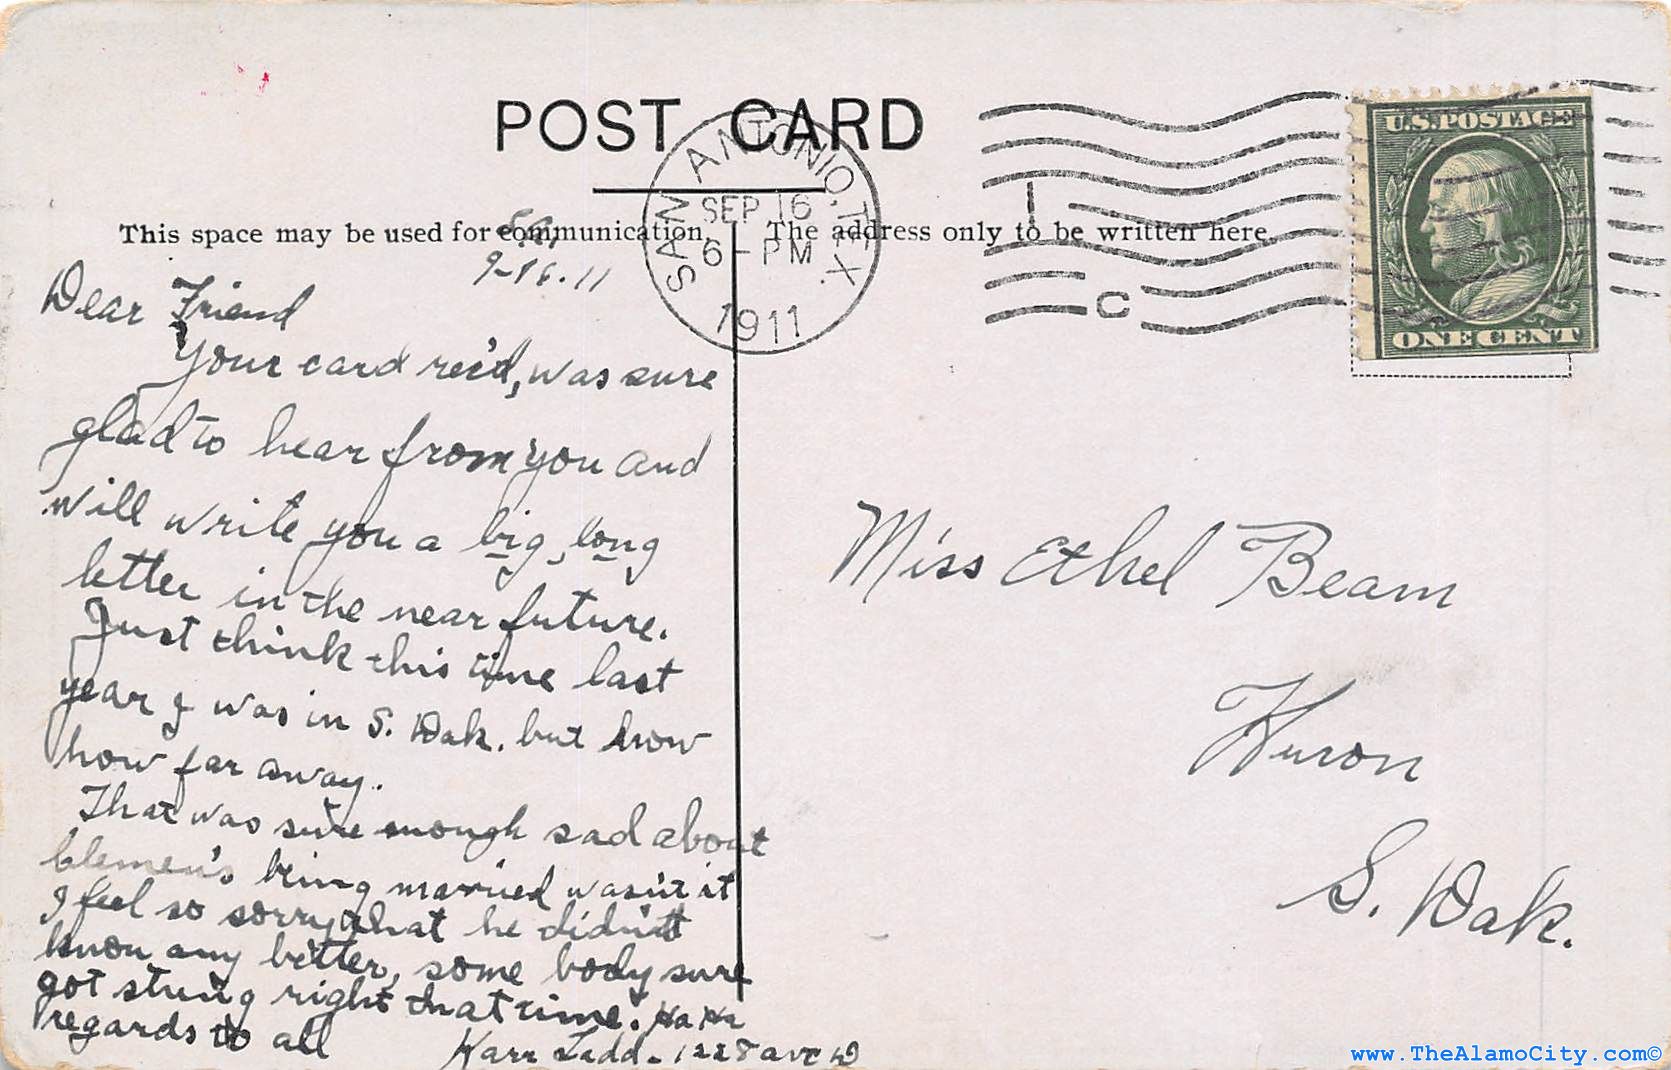 POST CARD
SAN ANTONIO, TEX.
SEP 16
6 - PM
1911
1 C
U.S. POSTAGE
ONE CENT
This space may be used for communication. The address only to be written here.
S.A.
9-16-11
Dear Friend
Your card rec'd, was sure
glad to hear from you and
will write you a big, long
letter in the near future.
Just think this time last
year I was in S. Dak. but know
how far away.
That was sure enough sad about
Clemen's being married wasn't it
I feel so sorry that he didn't
know any better, some body sure
got stung right that time. Ha Ha
regards to all
Karr Ladd - 1228 ave D
Miss Ethel Beam
Huron
S. Dak.
www.TheAlamoCity.com©